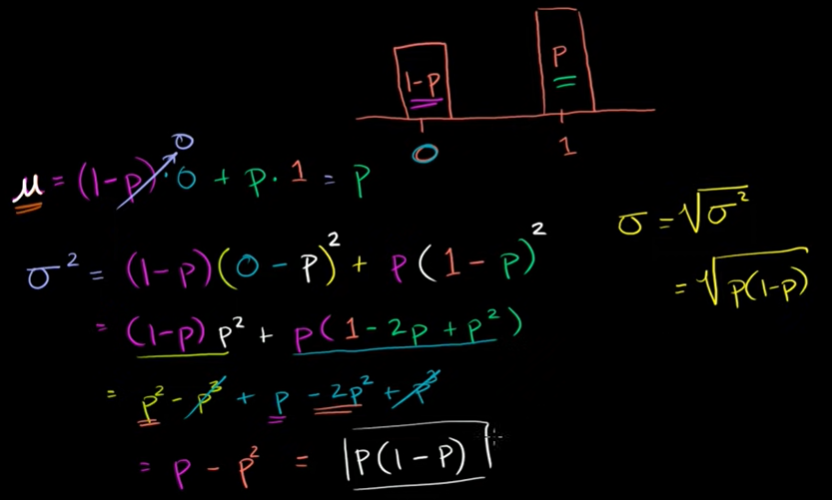 1-p
p
0
1
0
μ = (1-p)·0 + p·1 = p
σ² = (1-p)(0-p)² + p(1-p)²
= (1-p)p² + p(1-2p+p²)
= p² - p³ + p - 2p² + p³
= p - p² = p(1-p)
σ = √σ²
= √p(1-p)